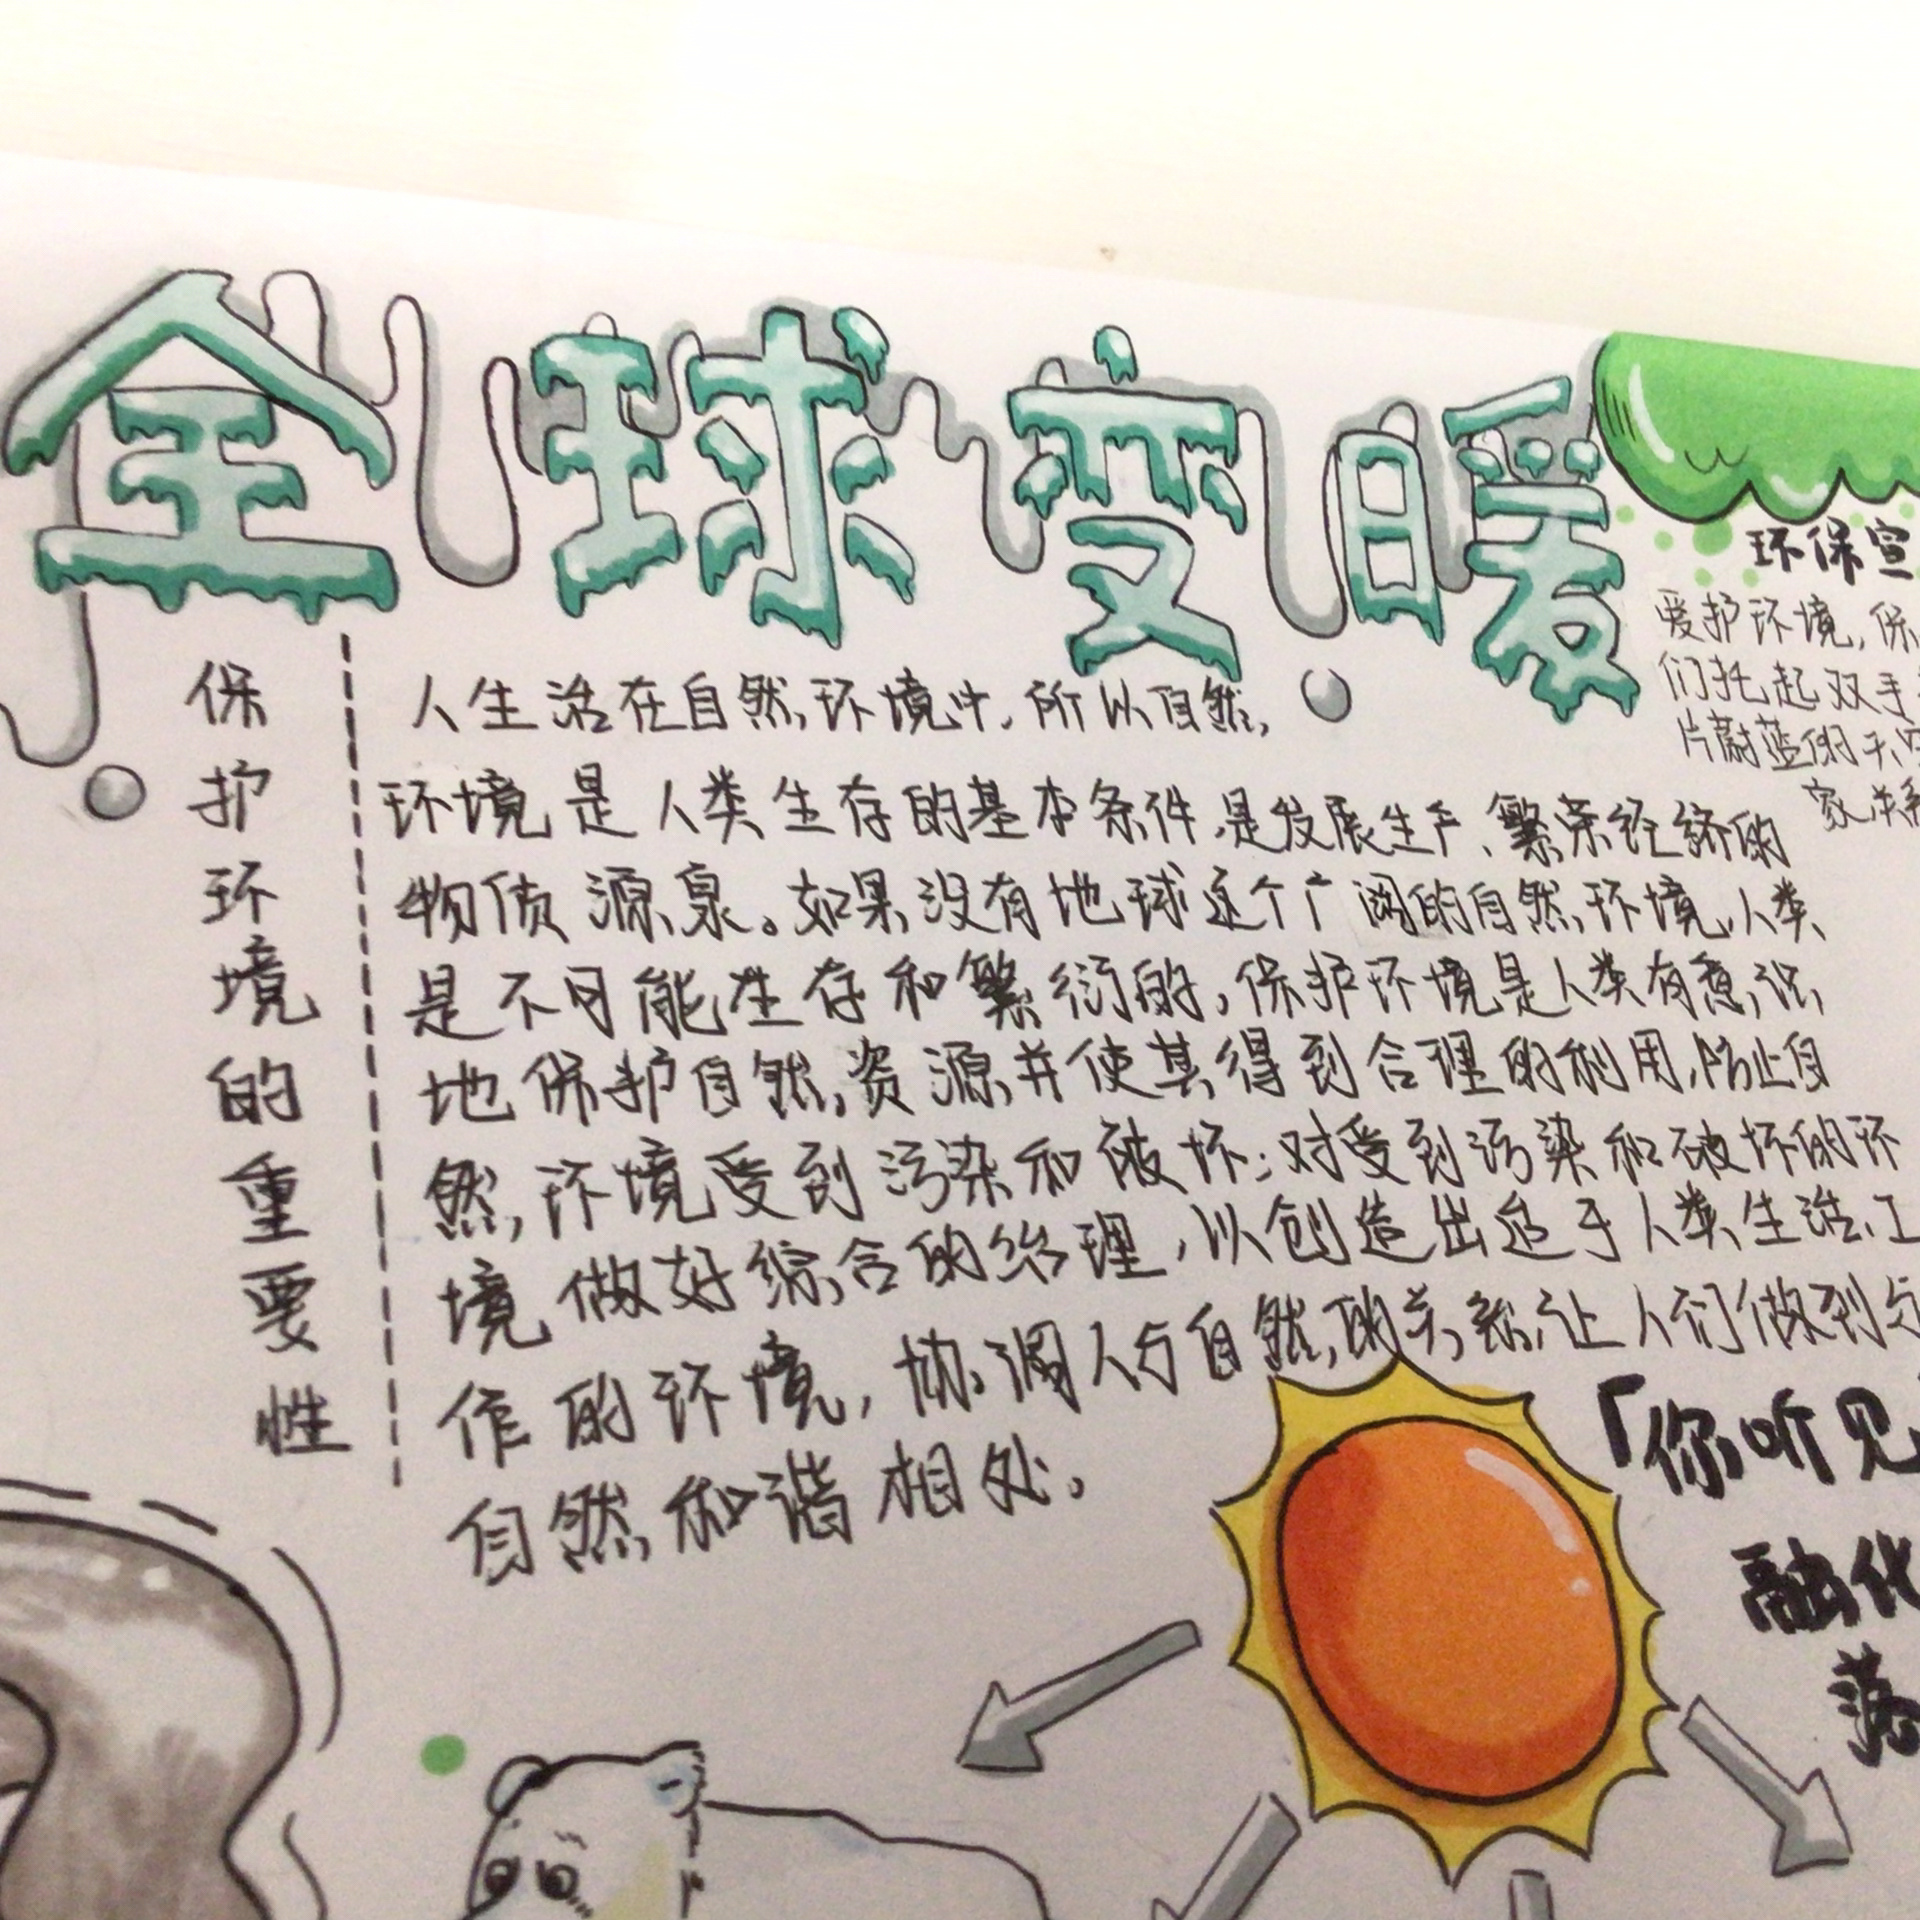 全球变暖
保护环境的重要性
人生活在自然环境中,所以自然,
环境是人类生存的基本条件,是发展生产、繁荣经济的
物质源泉。如果没有地球这个广阔的自然环境,人类
是不可能生存和繁衍的,保护环境是人类有意识
地保护自然资源并使其得到合理的利用,防止自
然环境受到污染和破坏;对受到污染和破坏的环
境做好综合的治理,以创造出适于人类生活、工
作的环境,协调人与自然的关系,让人们做到与
自然和谐相处。
环保宣
爱护环境,保
们托起双手
片蔚蓝的天空
家关系
「你听见
融化
落